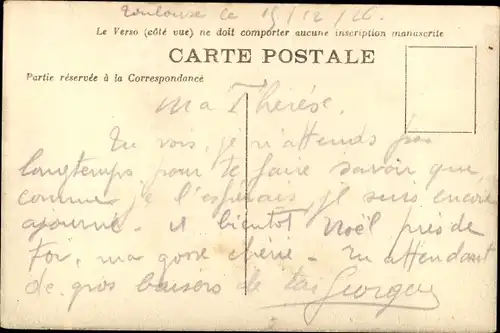 Toulouse le 15/12/26.
Le Verso (côté vue) ne doit comporter aucune inscription manuscrite
CARTE POSTALE
Partie réservée à la Correspondance
Ma Thérése.
Tu vois, je n'attends pas
longtemps pour te faire savoir que,
comme je l'espérais je suis encore
ajourné. et bientot Noël près de
Toi, ma gosse chérie. En attendant
de gros baisers de ton Georges